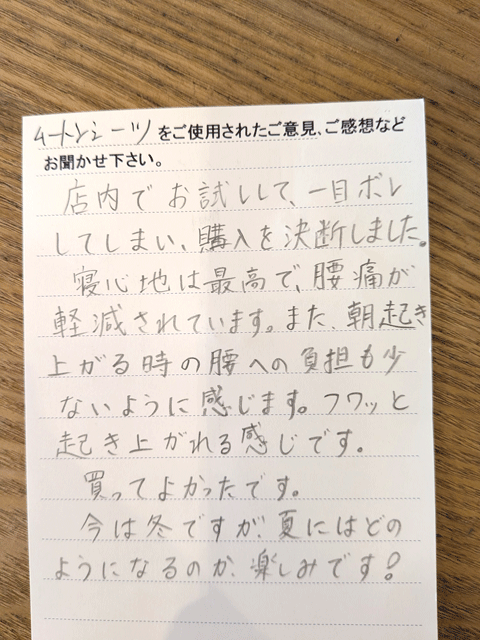 ムートンシーツをご使用されたご意見、ご感想など
お聞かせ下さい。
店内でお試しして、一目ボレ
してしまい、購入を決断しました。
寝心地は最高で、腰痛が
軽減されています。また、朝起き
上がる時の腰への負担も少
ないように感じます。フワッと
起き上がれる感じです。
買ってよかったです。
今は冬ですが、夏にはどの
ようになるのか、楽しみです!